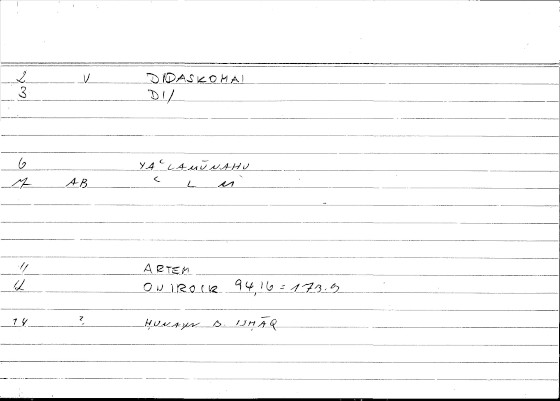 2 V DIDASKOMAI
3 DI/
6 YAʿLAMŪNAHU
7 AB ʿ L M
11 ARTEM
4 ONIROCR 94,16 = 173.9
14 ? ḤUNAYN B. ISḤĀQ